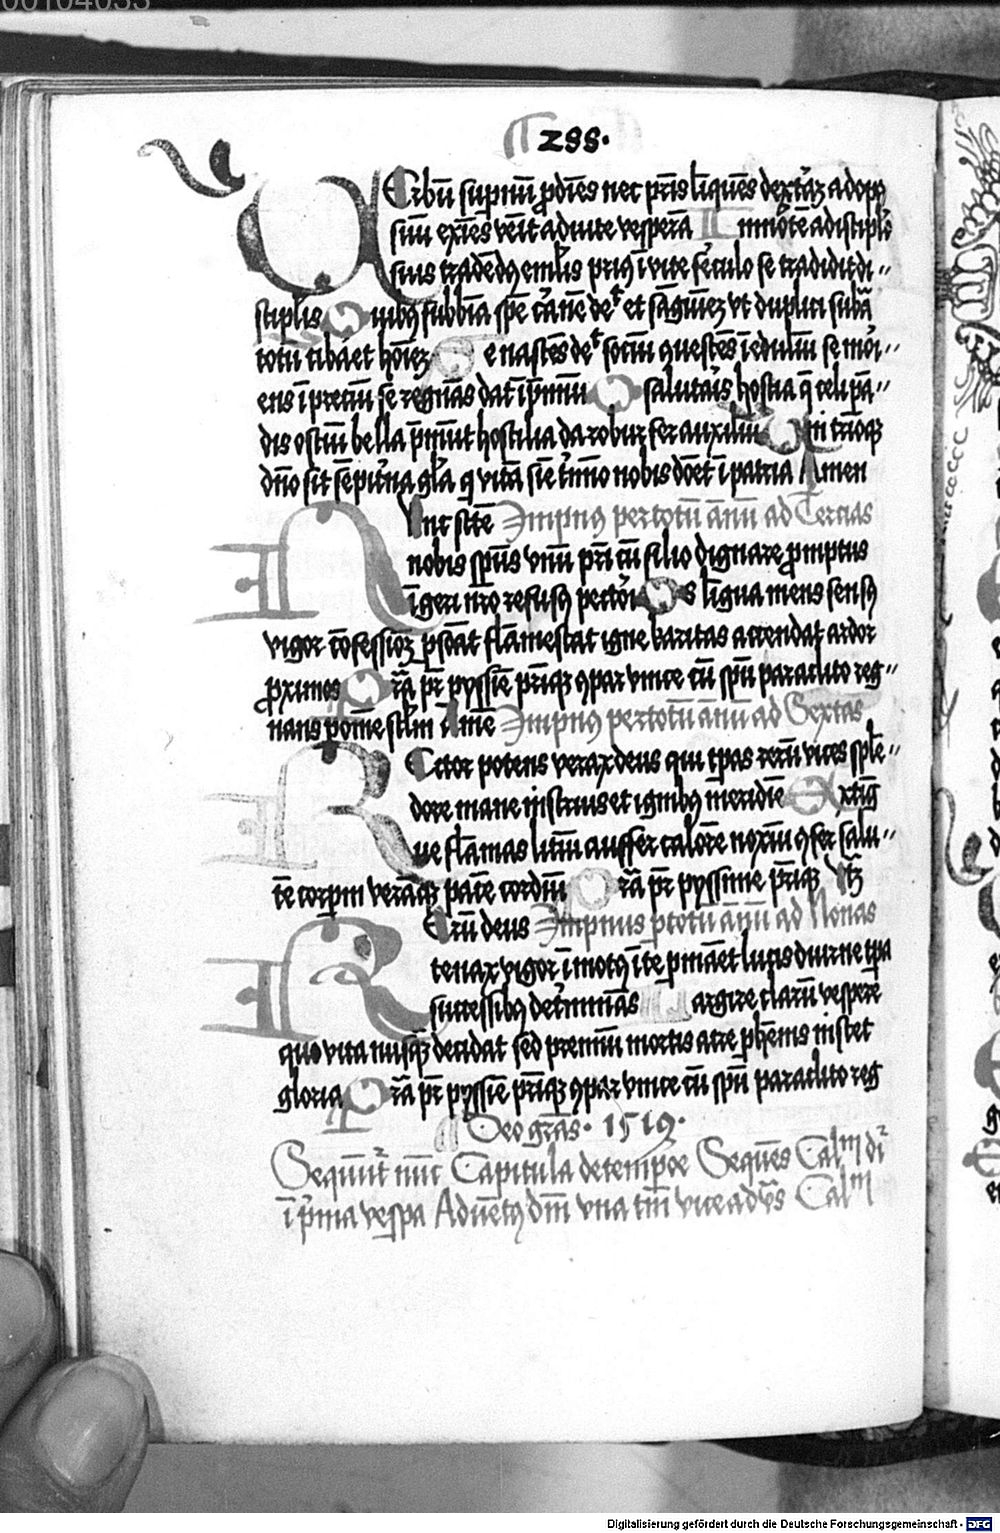 00104033
288.
VErbū supnū ꝓdiēs nec pr̄is liquēs dextᵃ̄ꝫ ad opꝯ
suū exiēs venit ad uite vesperā In mōtē a discipło
suis tradēdꝰ emłis priꝰ ī vite fercło se tradidit di〃
sciplis Quibꝰ sub bīa spē carnē dedᵗ et sāguinēꝫ vt duplicis subā
totū cibaret hoīeꝫ Se nascēs dedᵗ sociū ꝯuescēs ī eduliū se mori〃
ens ī preciū se regnās dat ī p̄miū O salutaris hostia q̄ celi pā〃
dis ostiū bella p̄mūt hostilia da robur fer auxiliū Vni trinoqꝫ
dn̄o sit sēpiterna gła q vitā sine termino nobis donet ī patria Amen
NUnc scē Impnꝰ per totū ānū ad Tercias
nobis sp̄us vnū pr̄i cū filio dignare ꝓmptus
īgeri nr̄o refusꝰ pectori Os līgua mens sensꝰ
vigor ꝯfessionē psonāt flāmescat igne karitas accendat ardor
ꝓximos Prā pr̄ pyssīe pr̄iqꝫ ꝯpar vnice cū sp̄u paraclito reg〃
nans ꝑ om̄e scłm Amē Impnꝰ per totū ānū ad Sextas
REctor potens verax deus qui tpas rerū vices splē〃
dore mane īnstruis et ignibꝰ meridiē Extīg
ue flāmas litiū auffer calorē noxiū ꝯfer salu〃
tē corpm̄ veraqꝫ pacē cordiū Prā pr̄ pyssime pr̄iqꝫ Vtꝫ
REerū deus Impnus ꝑ totū ānū ad Nonas
tenax vigor īmotꝰ ī te ꝑmanēt lucis diurne tpa
successibꝰ determinās Largire clarū vespere
quo vita nusqꝫ decidat sed premiū mortis sacre ꝑhemis instet
gloria Prā pr̄ pyssīe pr̄iqꝫ ꝯpar vnice cū sp̄u paraclito reg
Deo gr̄as · 1519 ·
Sequūt̄ nūc Capitula de tempoe Sequēs Calᵐ di
ī pīma vespa Aduētꝰ dnī vna cum vice aduēs Calᵐ
Digitalisierung gefördert durch die Deutsche Forschungsgemeinschaft - DFG